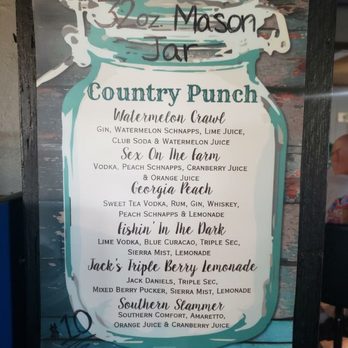 32oz Mason
Jar
Country Punch
Watermelon Crawl
Gin, Watermelon Schnapps, Lime Juice,
Club Soda & Watermelon Juice
Sex On The Farm
Vodka, Peach Schnapps, Cranberry Juice
& Orange Juice
Georgia Peach
Sweet Tea Vodka, Rum, Gin, Whiskey,
Peach Schnapps & Lemonade
Fishin' In The Dark
Lime Vodka, Blue Curacao, Triple Sec,
Sierra Mist, Lemonade
Jack's Triple Berry Lemonade
Jack Daniels, Triple Sec,
Mixed Berry Pucker, Sierra Mist, Lemonade
Southern Slammer
Southern Comfort, Amaretto,
Orange Juice & Cranberry Juice
$10